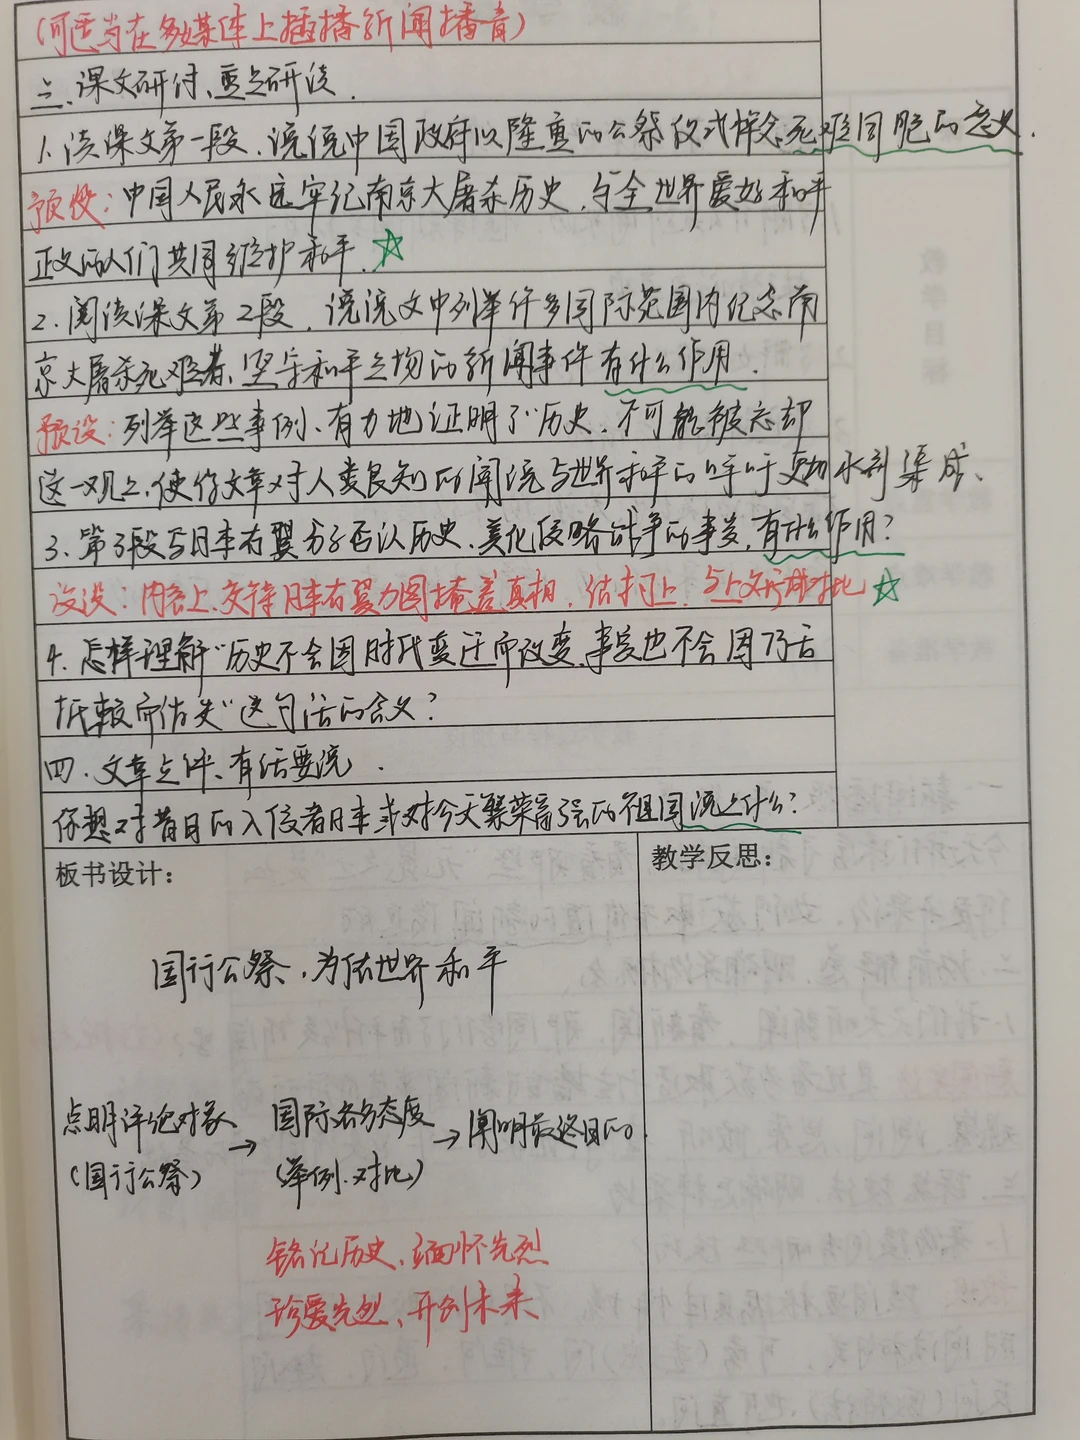 (可适当在多媒体上插播新闻播音)
三、课文研讨、重点研读.
1. 读课文第一段, 说说中国政府以隆重的公祭仪式悼念死难同胞的意义.
预设: 中国人民永远牢记南京大屠杀历史, 与全世界爱好和平
正义的人们共同维护和平. ☆
2. 阅读课文第2段, 说说文中列举许多国际范围内纪念南
京大屠杀死难者、坚守和平之物的新闻事件有什么作用.
预设: 列举这些事例, 有力地证明了"历史, 不可能被忘却
这一观点, 使得文章对人类良知的阐说与世界和平的呼吁更加水到渠成.
3. 第3段写日本右翼分子否认历史、美化侵略战争的事实, 有什么作用?
设: 内容上, 交待日本右翼力图掩盖真相, 结构上, 与上文形成对比 ☆
4. 怎样理解"历史不会因时代变迁而改变, 事实也不会因巧舌
抵赖而消失"这句话的含义?
四. 文章点评、有话要说.
你想对昔日的入侵者日本或对今天繁荣富强的祖国说点什么?
板书设计:
教学反思:
国行公祭, 为佑世界和平
点明评论对象 → 国际各方态度 → 阐明最终目的.
(国行公祭) (举例、对比)
铭记历史、缅怀先烈
珍爱先烈、开创未来